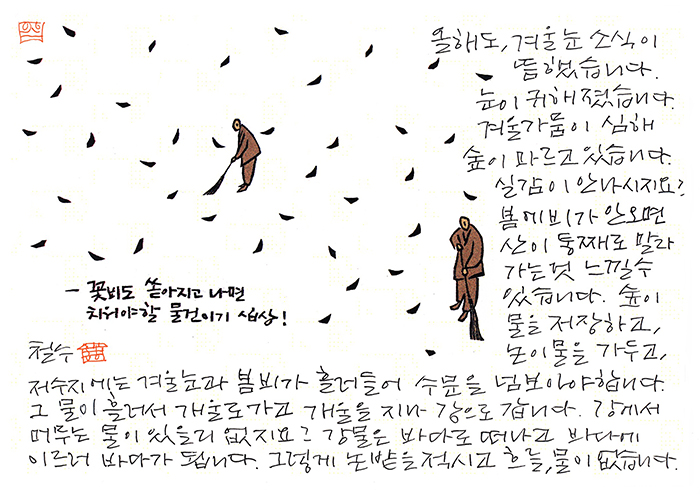 올해도, 겨울눈 소식이
뜸했습니다.
눈이 귀해졌습니다.
겨울가뭄이 심해
숲이 마르고 있습니다.
실감이 안나시지요?
봄에 비가 안오면
산이 통째로 말라
가는 것 느낄수
있습니다. 숲이
물을 저장하고,
논이 물을 가두고,
- 꽃비도 쏟아지고 나면
치워야할 물건이기 십상!
철수
저수지에는 겨울눈과 봄비가 흘러들어 수문을 넘보아야합니다.
그 물이 흘러서 개울로가고 개울을 지나 강으로 갑니다. 강에서
머무는 물이 있을리 없지요? 강물은 바다로 떠나고 바다에
이르러 바다가 됩니다. 그렇게 논밭을 적시고 흐를, 물이 없습니다.